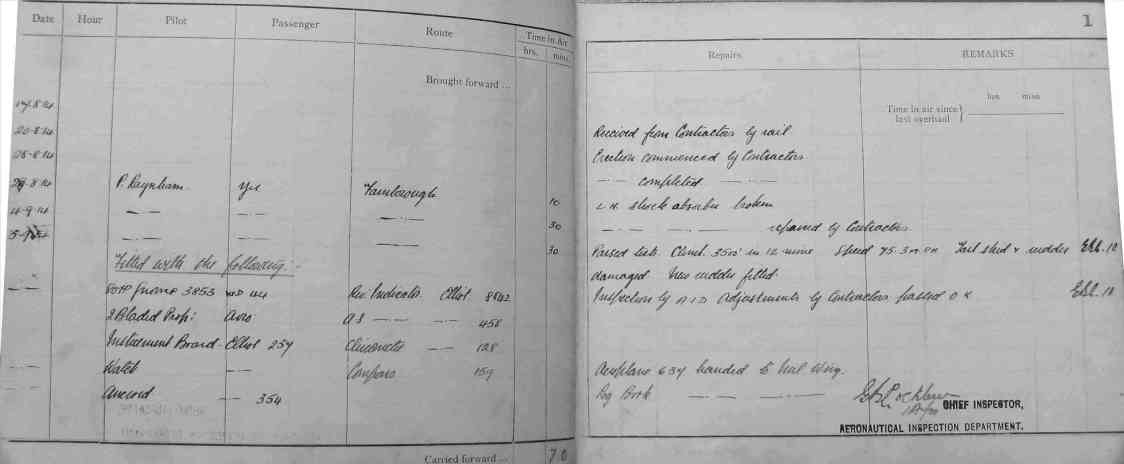 1
Date Hour Pilot Passenger Route Time in Air
hrs. mins.
Brought forward ...
20-8-14
P. Raynham. Yes Farnborough 10
4-9-14 — — — 30
— — — 30
Fitted with the following:-
80HP Gnome 3853 Rev. Indicator Elliot
2 Bladed Prop: Avro A S — — 458
Instrument Board - Elliot 254 Clinometer — 128
Watch — Compass 159
Aneroid — 354
Carried forward ... 70
Repairs. REMARKS
hrs mins
Time in air since last overhaul }
Received from Contractors by rail
Erection commenced by Contractors
— completed —
L.H. shock absorber broken
— — repaired by Contractors
Passed tests. Climb. 3500' in 12 mins Speed 75.3 M.P.H Tail skid & rudder
damaged New rudder fitted.
Inspection by A.I.D Adjustments by Contractors passed O K
Aeroplane 637 handed to Wing.
Log Book
CHIEF INSPECTOR,
AERONAUTICAL INSPECTION DEPARTMENT.